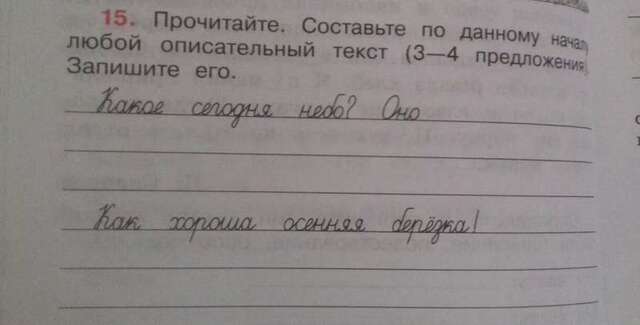 15. Прочитайте. Составьте по данному начал
любой описательный текст (3—4 предложения).
Запишите его.
Какое сегодня небо? Оно
Как хороша осенняя берёзка!